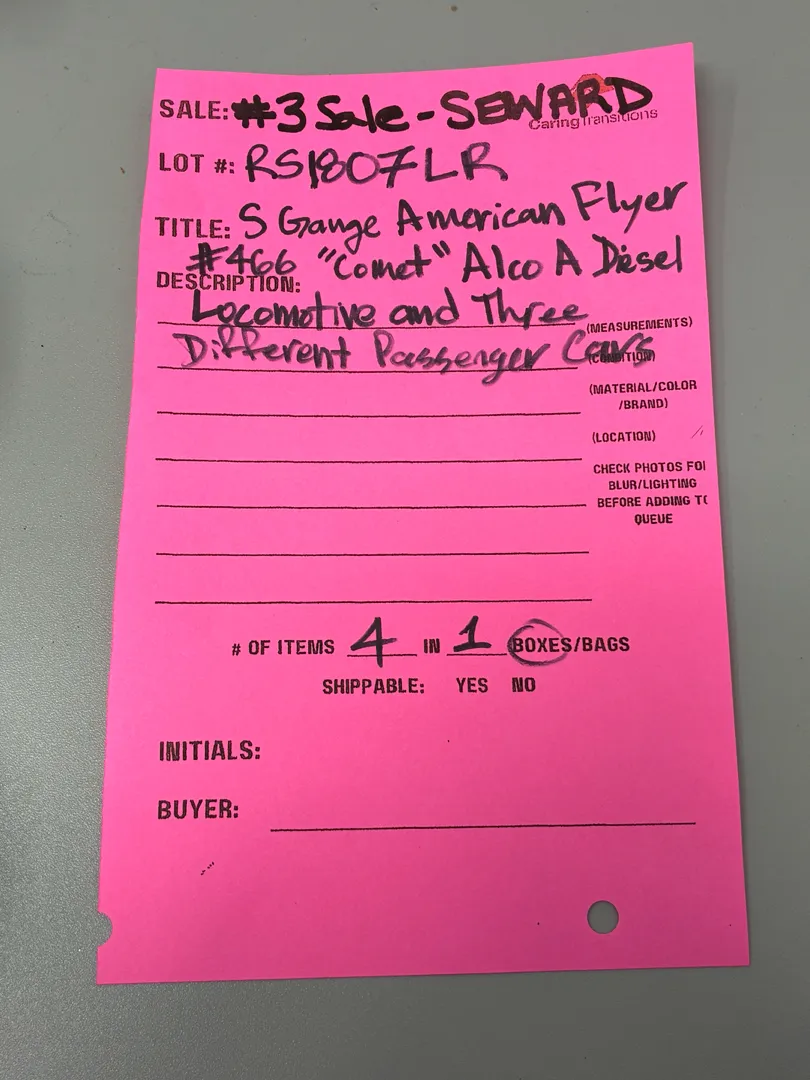 SALE: #3 Sale - SEWARD
Caring Transitions
LOT #: RS1807LR
TITLE: S Gauge American Flyer
#466 "Comet" Alco A Diesel
DESCRIPTION:
Locomotive and Three
(MEASUREMENTS)
Different Passenger Cars
(CONDITION)
(MATERIAL/COLOR
/BRAND)
(LOCATION)
CHECK PHOTOS FOR
BLUR/LIGHTING
BEFORE ADDING TO
QUEUE
# OF ITEMS 4 IN 1 BOXES/BAGS
SHIPPABLE: YES NO
INITIALS:
BUYER: